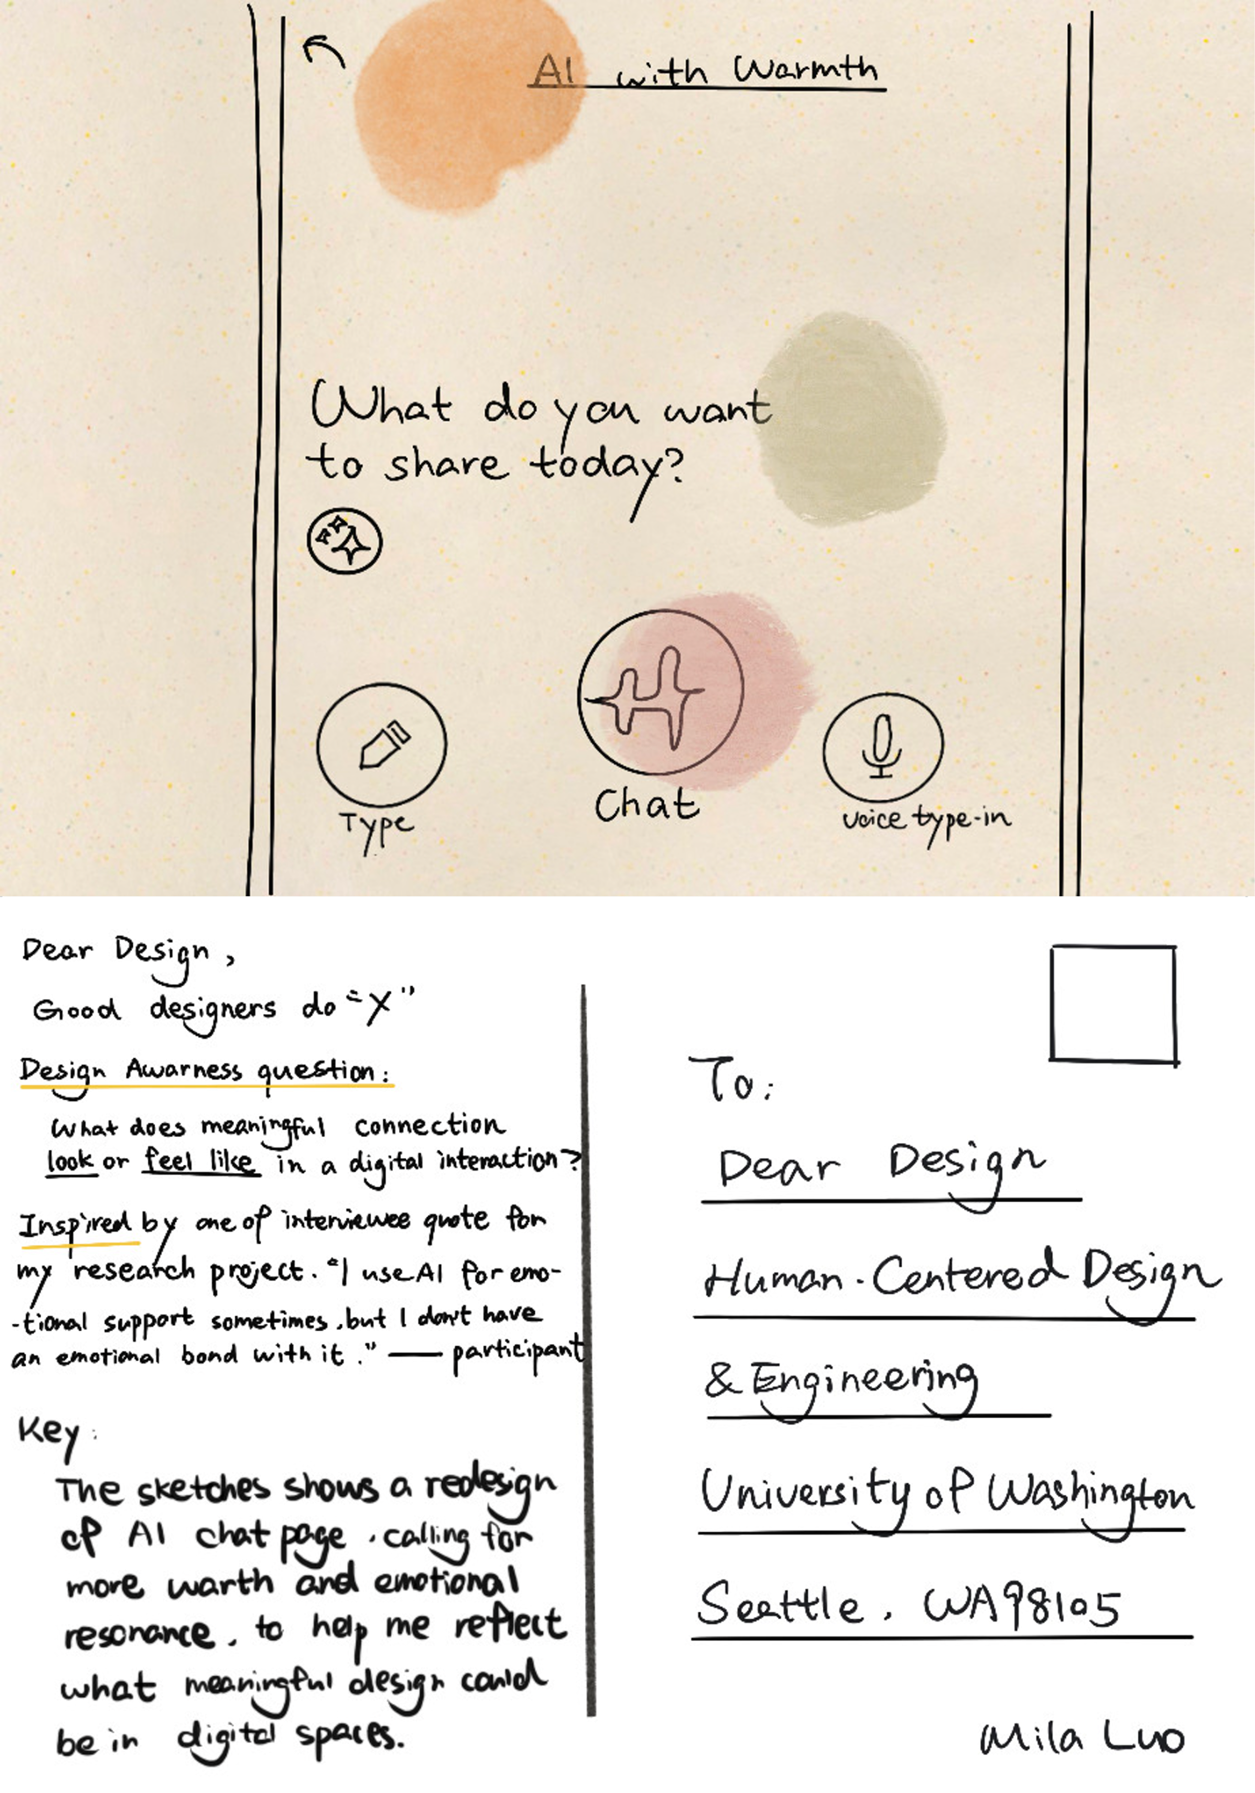 AI with Warmth
What do you want
to share today?
Type
Chat
voice type-in
Dear Design,
Good designers do "X"
Design Awarness question:
What does meaningful connection
look or feel like in a digital interaction?
Inspired by one of interviewee quote for
my research project. "I use AI for emo-
-tional support sometimes, but I don't have
an emotional bond with it." — participant
Key:
The sketches shows a redesign
of AI chat page, calling for
more warth and emotional
resonance, to help me reflect
what meaningful design could
be in digital spaces.
To:
Dear Design
Human-Centered Design
& Engineering
University of Washington
Seattle, WA98105
Mila Luo